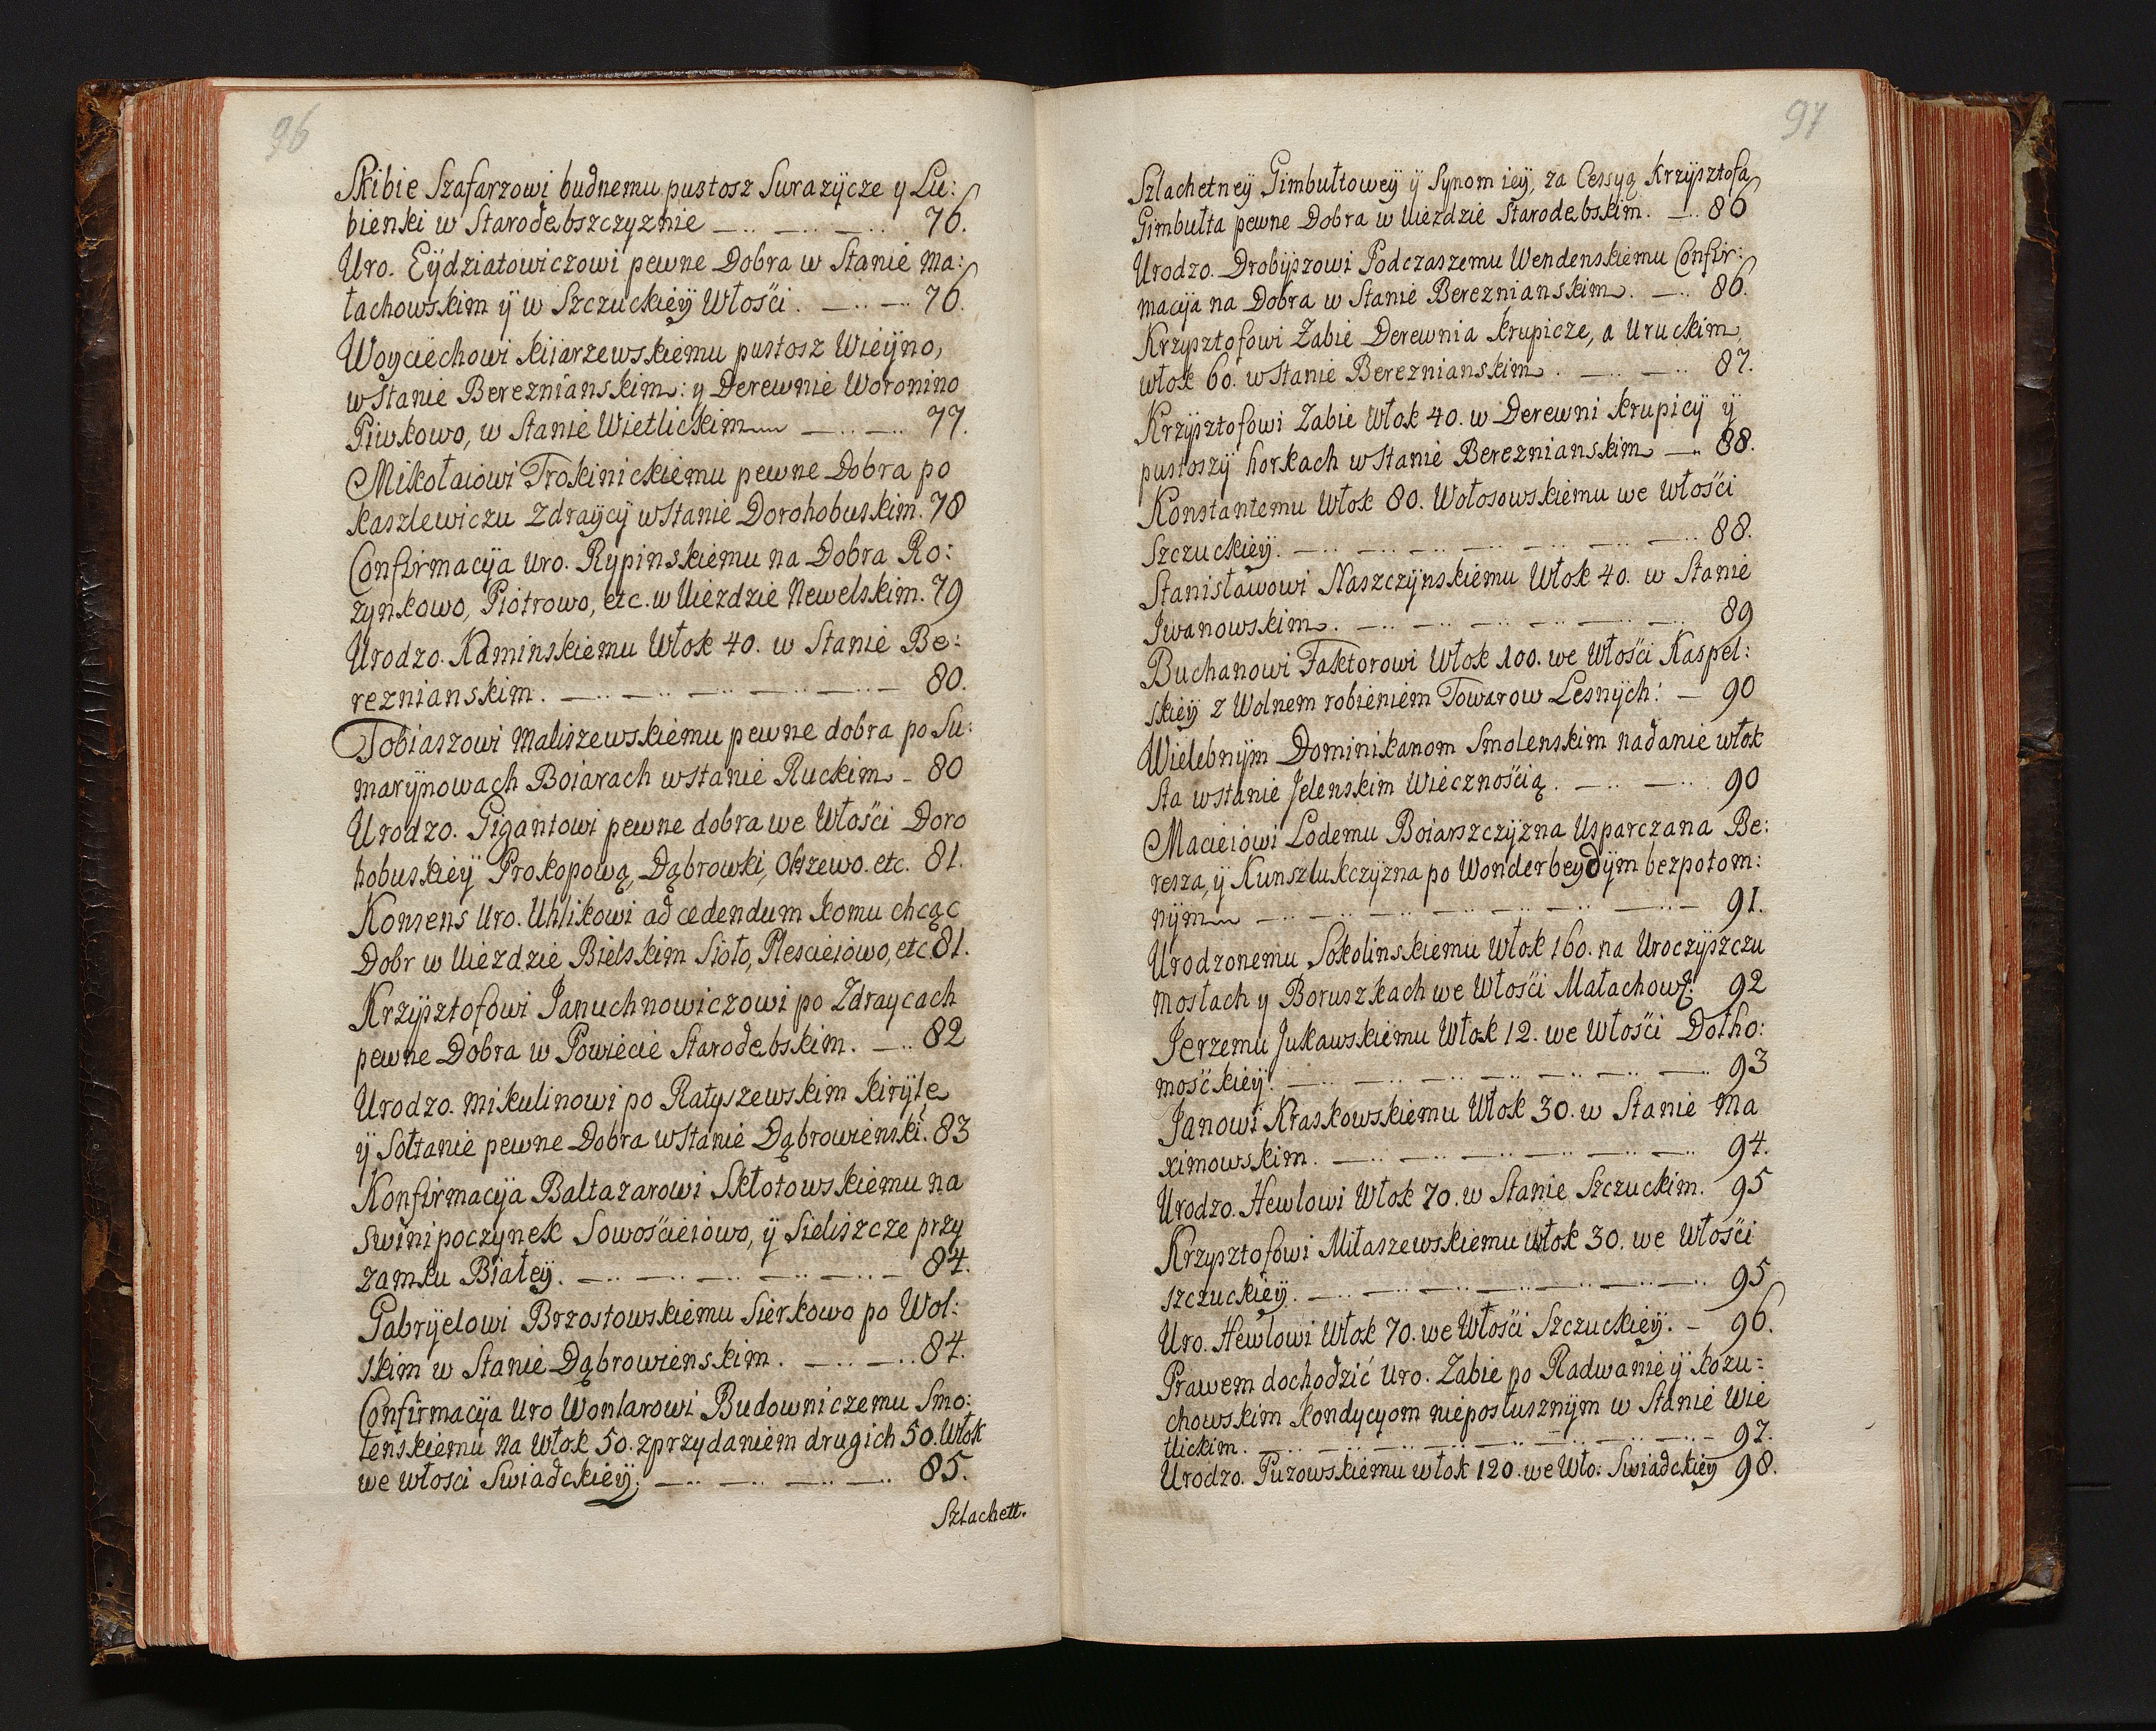 96
Skibie Szafarzowi budnemu pustosz Surazÿcze y Lu:
bienki w Starodębszczyznie — .. — .. — .. 76.
Uro. Eÿdziatowiczowi pewne Dobra w Stanie Ma:
łachowskim ÿ w Szczuckieÿ Włości. — .. — .. 76.
Woyciechowi Kiiarzewskiemu pustosz Wieÿno,
w Stanie Bereznianskim: y Derewnie Woronino
Piwkowo, w Stanie Wietlickim — .. — .. 77.
Mikołaiowi Trokinickiemu pewne Dobra po
Kaszlewiczu Zdraÿcÿ w Stanie Dorohobuskim. 78
Confirmacÿa Uro. Rypinskiemu na Dobra Ro:
zynkowo, Piotrowo, etc. w Uiezdzie Newelskim. 79
Urodzo. Kaminskiemu Włok 40. w Stanie Be:
reznianskim. — .. — .. — .. — .. — .. — 80.
Tobiaszowi Maliszewskiemu pewne dobra po Su:
marÿnowach Boiarach w stanie Ruckim — 80
Urodzo. Gigantowi pewne dobra we Włości Doro
hobuskieÿ Prokopową, Dąbrowki, Olszewo. etc. 81.
Konsens Uro. Uhlikowi ad cedendum komu chcąc
Dobr w Uiezdzie Bielskim Sioło, Plescieiowo, etc. 81.
Krzÿsztofowi Januchnowiczowi po Zdraycach
pewne Dobra w Powiecie Starodębskim. — .. 82
Urodzo. Mikulinowi po Ratyszewskim Kirÿłę
ÿ Sołtanie pewne Dobra w Stanie Dąbrowienski. 83
Konfirmacÿa Baltazarowi Skłotowskiemu na
Swini poczynek Sowościeiowo, ÿ Sieliszcze przy
zamku Białeÿ. — .. — .. — .. — .. — 84.
Gabrÿelowi Brzostowskiemu Sierkowo po Wol:
skim w Stanie Dąbrowienskim. — .. — .. 84.
Confirmacÿa Uro Wonlarowi Budowniczemu Smo:
lenskiemu na Włok 50. z przydaniem drugich 50. Włok
we Włosci Swiadckieÿ. — .. — .. — .. — .. 85.
Szlachett.
97
Szlachetneÿ Gimbułtoweÿ ÿ Synom ieÿ, za Cessyą Krzÿsztofa
Gimbułta pewne Dobra w Uiezdzie Starodebskim. — .. 86
Urodzo. Drobÿszowi Podczaszemu Wendenskiemu Confir:
macÿa na Dobra w Stanie Bereznianskim. — .. 86.
Krzysztofowi Zabie Derewnia Krupicze, a Uruckim,
włok 60. w Stanie Bereznianskim. — .. — .. 87.
Krzÿsztofowi Zabie Włok 40. w Derewni Krupicÿ ÿ
pustoszÿ horkach w Stanie Bereznianskim — .. 88.
Konstantemu Włok 80. Wołosowskiemu we Włości
Szczuckieÿ. — .. — .. — .. — .. — .. — .. — .. 88.
Stanisławowi Naszczÿnskiemu Włok 40. w Stanie
Jwanowskim. — .. — .. — .. — .. — .. — .. 89
Buchanowi Faktorowi Włok 100. we Włości Kaspel:
skieÿ z Wolnem robieniem Towarow Lesnÿch. — 90
Wielebnÿm Dominikanom Smolenskim nadanie włok
Sta w stanie Jelenskim Wiecznością. — .. — .. 90
Macieiowi Lodemu Boiarszczÿzna Usparczana Be:
resza, ÿ Kunszlukczÿzna po Wonderbeydÿm bezpotom:
nÿm — .. — .. — .. — .. — .. — .. — .. — 91.
Urodzonemu Sokolinskiemu Włok 160. na Uroczÿszczu
Mostach y Boruszkach we Włości Małachow: 92
Jerzemu Jukawskiemu Włok 12. we Włości Dołho:
mośćkieÿ. — .. — .. — .. — .. — .. — .. — 93
Janowi Kraskowskiemu Włok 30. w Stanie Ma
ximowskim. — .. — .. — .. — .. — .. — .. 94.
Urodzo. Hewlowi Włok 70. w Stanie Szczuckim. 95
Krzysztofowi Miłaszewskiemu włok 30. we Włości
szczuckieÿ. — .. — .. — .. — .. — .. — .. 95
Uro. Hewlowi Włok 70. we Włości Szczuckieÿ. — 96.
Prawem dochodzić Uro. Zabie po Radwanie ÿ Kozu:
chowskim Kondycyom nieposłusznÿm w Stanie Wie
tlickim. — .. — .. — .. — .. — .. — .. — .. — 97.
Urodzo. Puzowskiemu włok 120. we Wło: Swiadckieÿ 98.